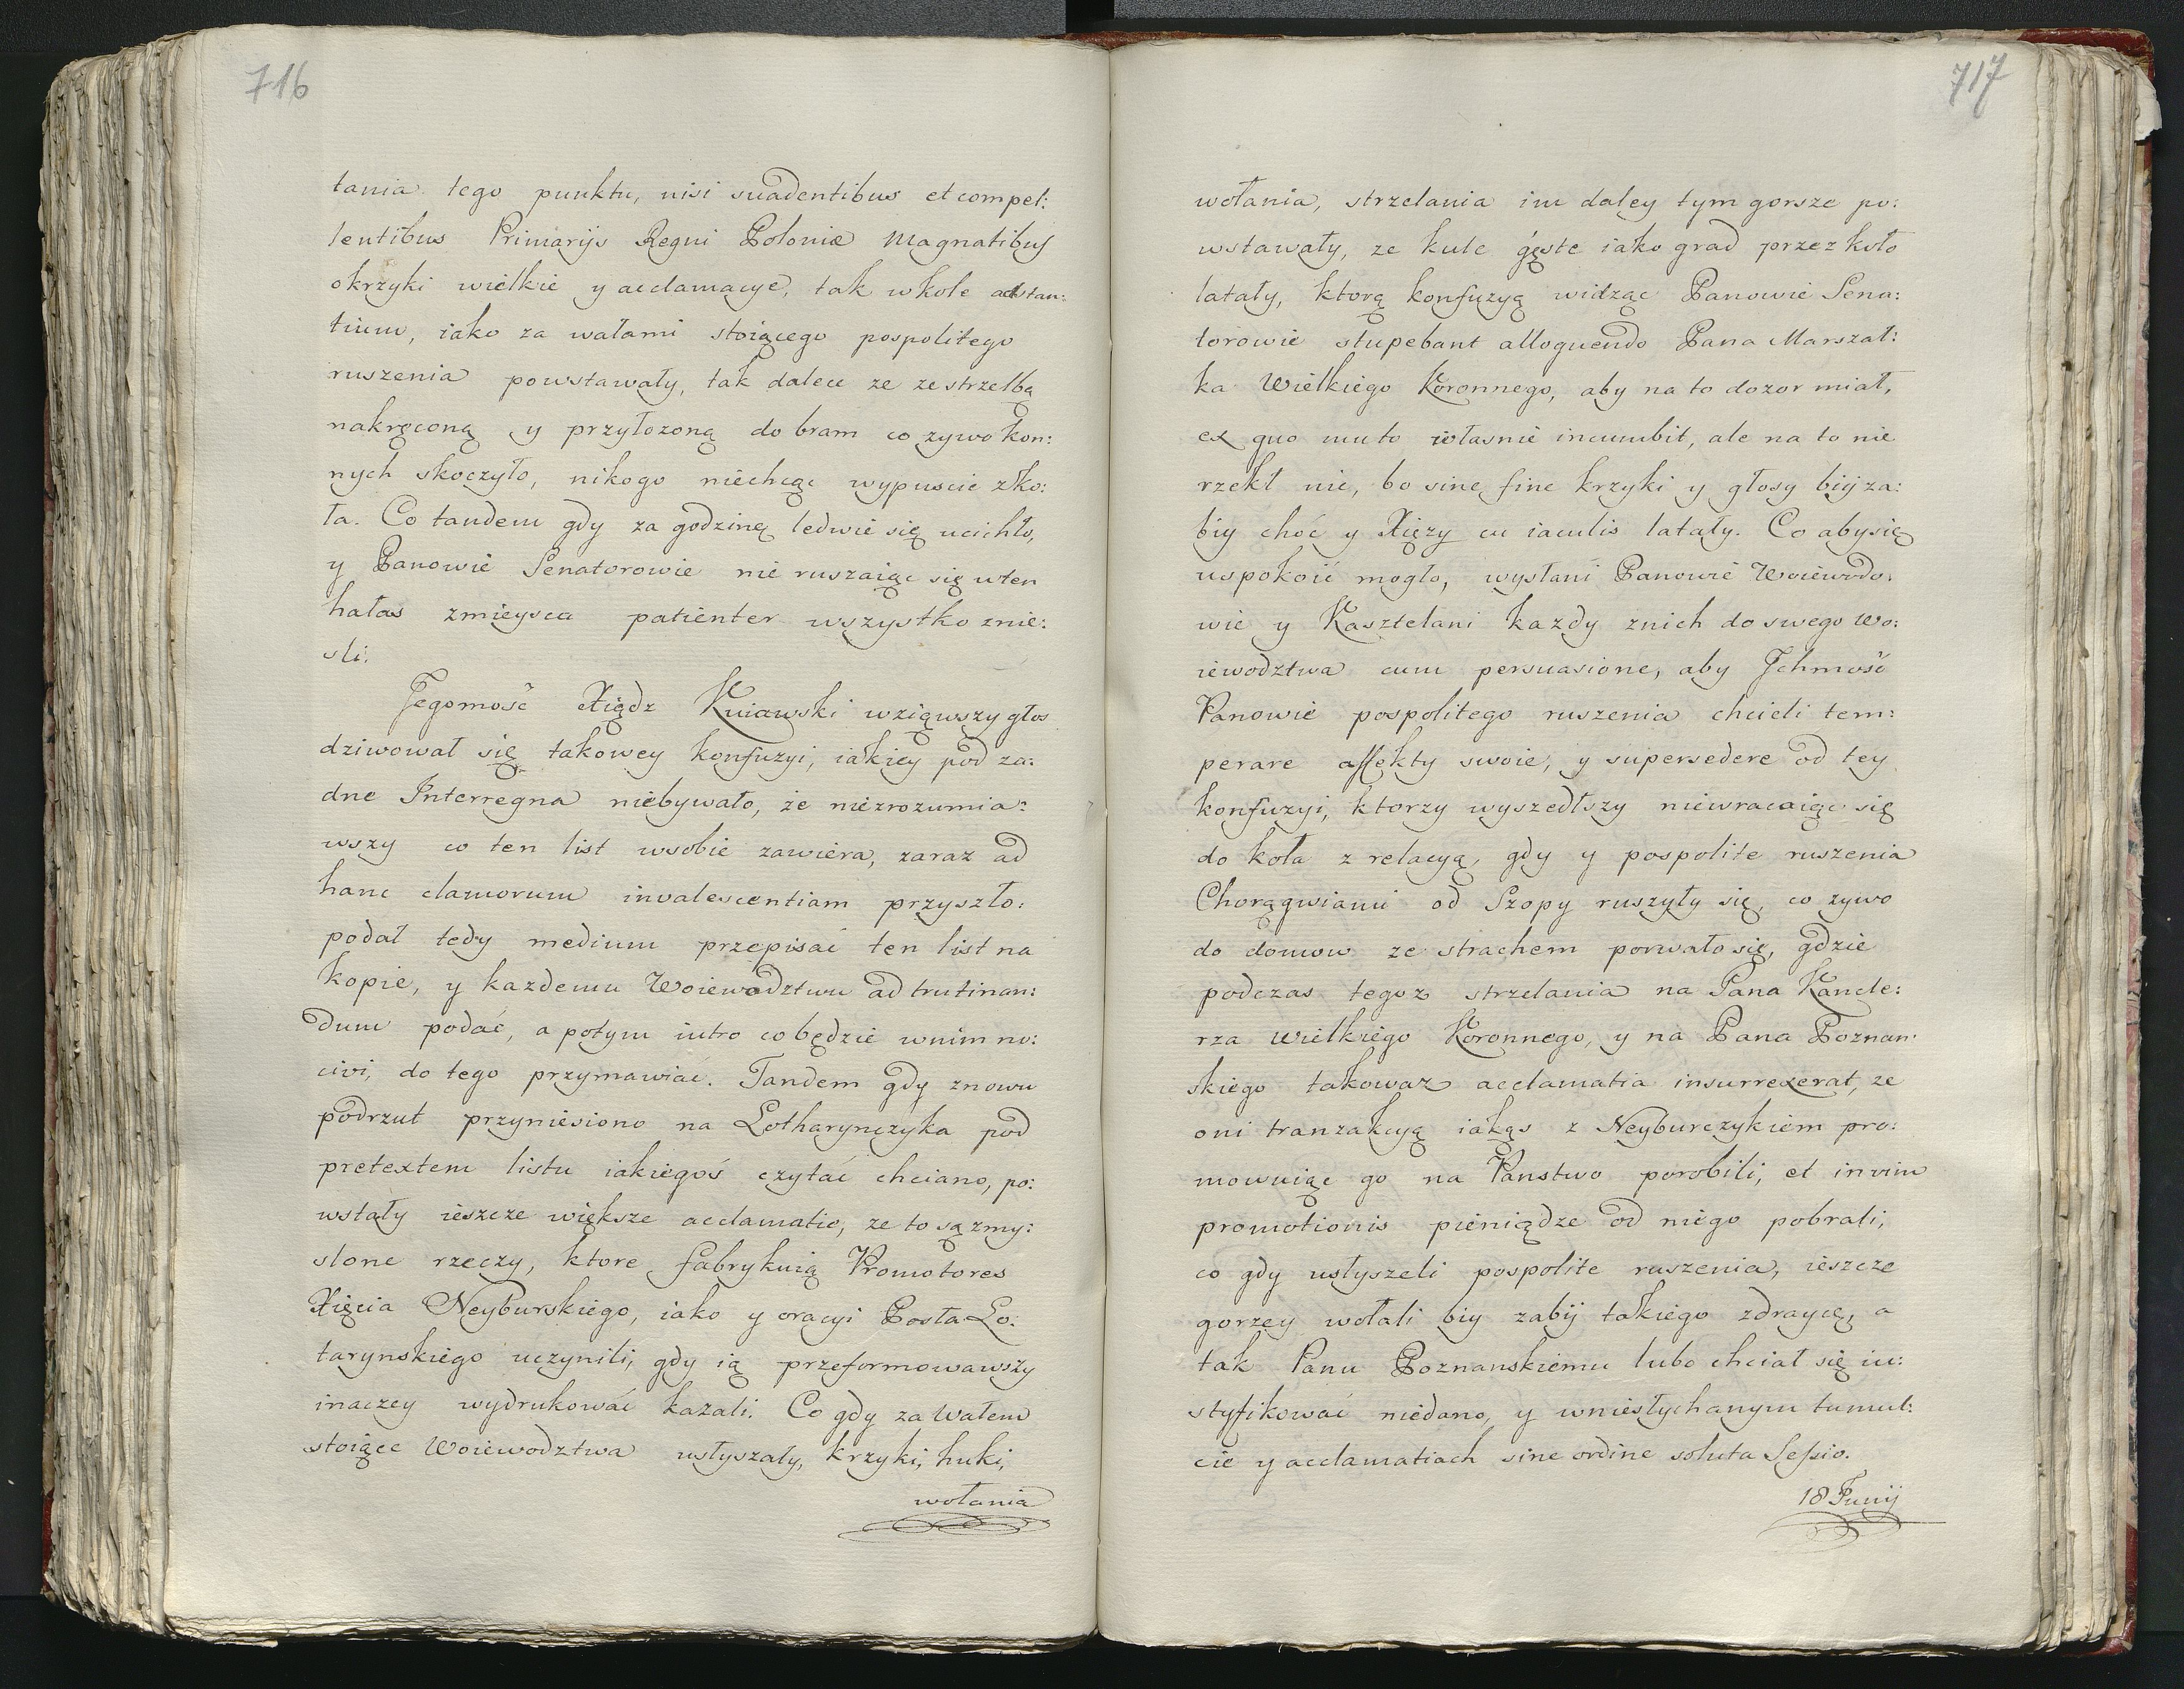 716
tania tego punktu, nisi suadentibus et compel:
lentibus Primarijs Regni Poloniæ Magnatibus
okrzyki wielkie y acclamacye, tak w kole adstan:
tium, iako za wałami stoiącego pospolitego
ruszenia powstawały, tak dalece ze ze strzelbą
nakręconą y przyłozoną do bram co zywo kon:
nych skoczyło, nikogo niechcąc wypuscic z ko:
ła. Co tandem gdy za godzinę ledwie się ucichło,
y Panowie Senatorowie nie ruszaiąc się w ten
hałas z mieysca patienter wszystko znie:
sli.
Jegomość Xiądz Kuiawski wziąwszy głos
dziwował się takowey konfuzyi, iakiey pod za:
dne Interregna niebywało, że niezrozumia:
wszy co ten list w sobie zawiera, zaraz ad
hanc clamorum invalescentiam przyszło:
podał tedy medium przepisać ten list na
kopie, y kazdemu Woiewodztwu ad trutinan:
dum podać, a potym iutro co będzie w nim no:
civi, do tego przymawiać. Tandem gdy znowu
podrzut przyniesiono na Lotharynczyka pod
pretextem listu iakiegoś czytać chciano, po:
wstały ieszcze większe acclamatie, ze to są zmy:
slone rzeczy, ktore fabrykuią Promotores
Xięcia Neyburskiego, iako y oracyi Posła Lo:
tarynskiego uczynili, gdy ią przeformowawszy
inaczey wydrukować kazali. Co gdy za Wałem
stoiące Woiewodztwa usłyszały, krzyki, huki,
wołania
717
wołania, strzelania im daley tym gorsze po:
wstawały, ze kule gęste iako grad przez koło
latały, ktorą konfuzyą widząc Panowie Sena:
torowie stupebant alloquendo Pana Marszał:
ka Wielkiego Koronnego, aby na to dozor miał,
ex quo mu to własnie incumbit, ale na to nie
rzekł nic, bo sine fine krzyki y głosy biy za:
biy choć y Xięzy cu iaculis latały. Co aby się
uspokoić mogło, wysłani Panowie Woiewodo:
wie y Kasztelani kazdy z nich do swego Wo:
iewodztwa cum persuasione, aby Ichmość
Panowie pospolitego ruszenia chcieli tem:
perare affekty swoie, y supersedere od tey
konfuzyi, ktorzy wyszedłszy niewracaiąc się
do koła z relacyą, gdy y pospolite ruszenia
Chorągwiami od Szopy ruszyły się, co zywo
do domow ze strachem porwało się, gdzie
podczas tegoz strzelania na Pana Kancle:
rza Wielkiego Koronnego, y na Pana Poznan:
skiego takowaz acclamatia insurrexerat, ze
oni tranzakcyą iakąs z Neyburczykiem pro:
mowuiąc go na Panstwo porobili, et in vim
promotionis pieniądze od niego pobrali,
co gdy usłyszeli pospolite ruszenia, ieszcze
gorzey wołali biy zabij takiego zdraycę, a
tak Panu Poznanskiemu lubo chciał się iu:
styfikować niedano, y w niesłychanym tumul:
cie y acclamatiach sine ordine soluta Sessio.
18 Junij